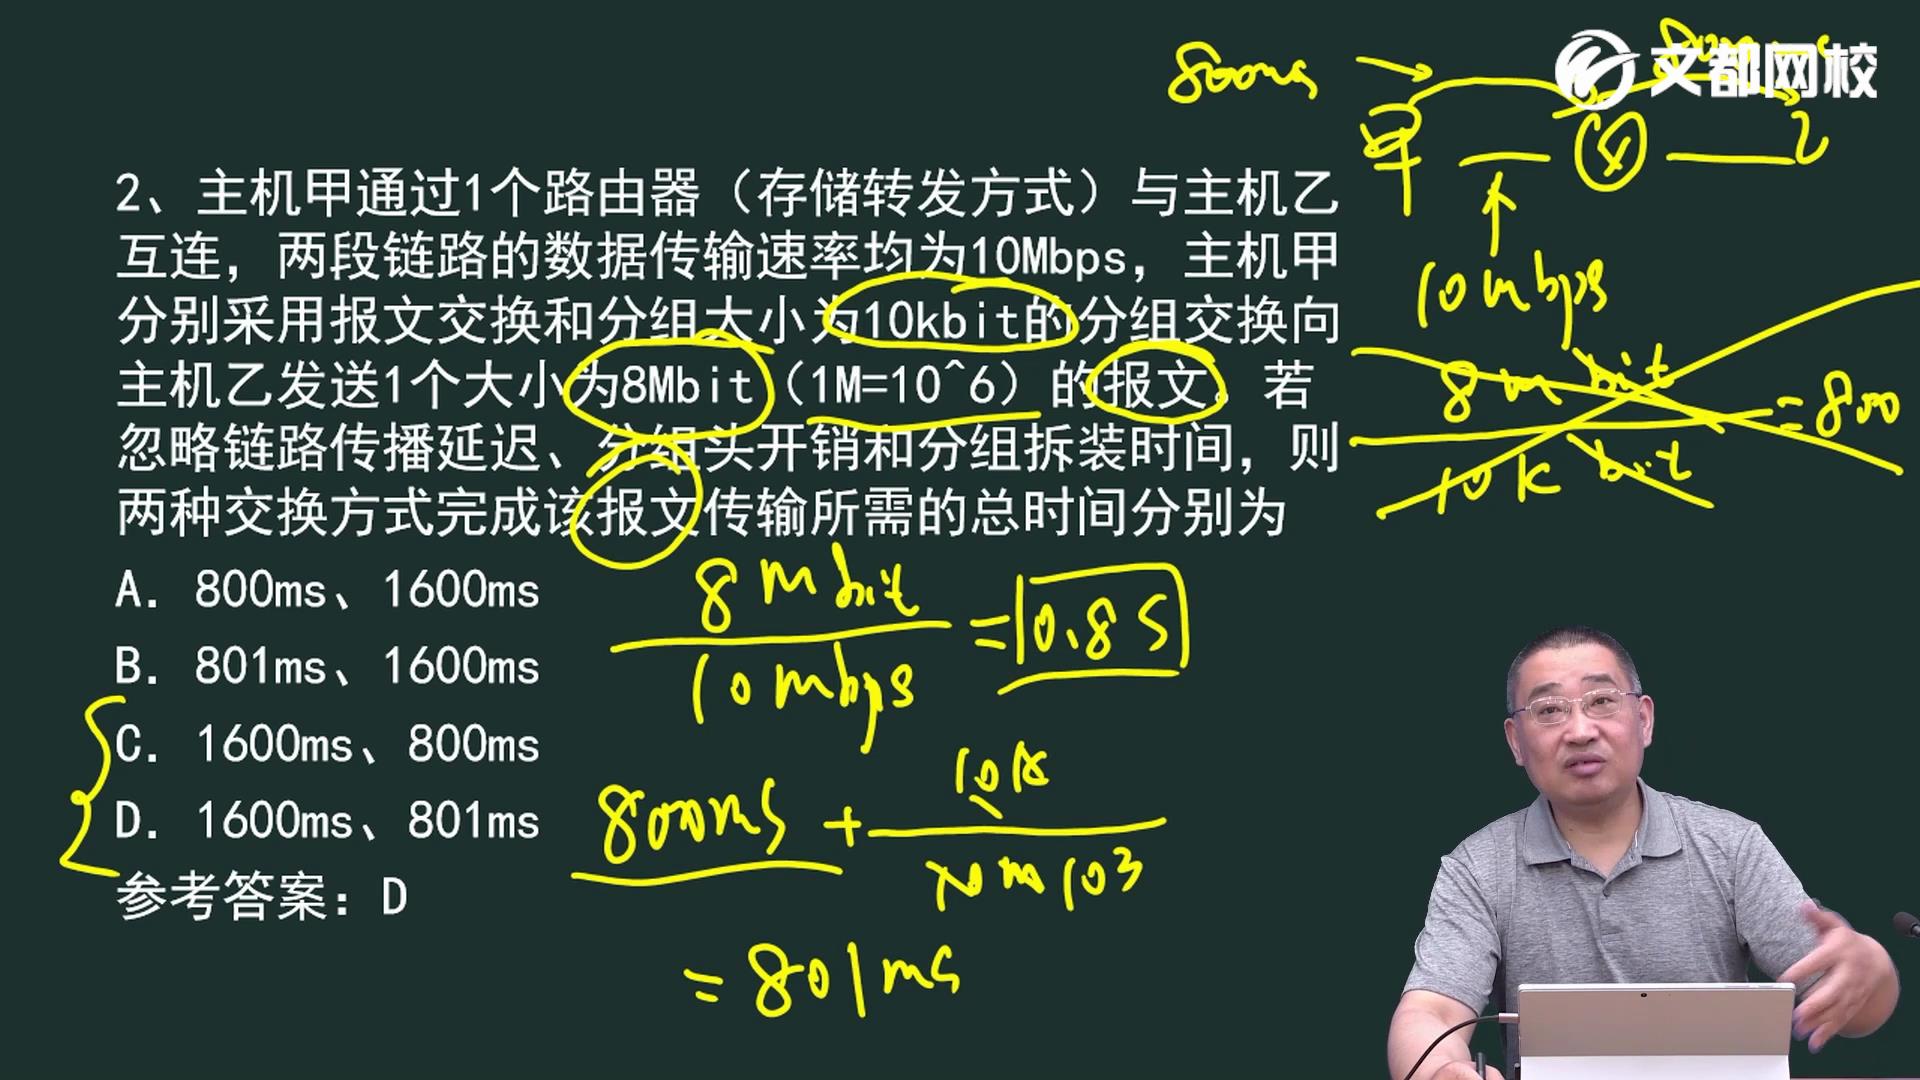 文都网校
800ms
甲
乙
10mbps
2、主机甲通过1个路由器（存储转发方式）与主机乙
互连，两段链路的数据传输速率均为10Mbps，主机甲
分别采用报文交换和分组大小为10kbit的分组交换向
主机乙发送1个大小为8Mbit（1M=10^6）的报文。若
忽略链路传播延迟、分组头开销和分组拆装时间，则
两种交换方式完成该报文传输所需的总时间分别为
8m bit
10k bit
=800
A. 800ms、1600ms
B. 801ms、1600ms
C. 1600ms、800ms
D. 1600ms、801ms
参考答案：D
8mbit
10mbps
=0.8S
800ms + 10k
10m 103
=801ms